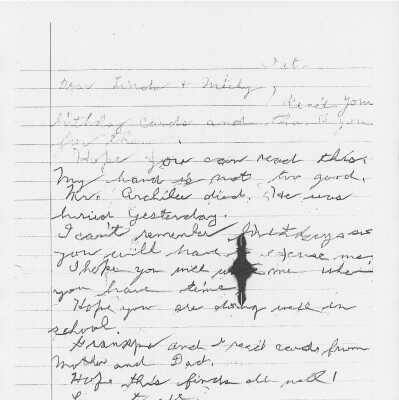 Sat.
Dear Linda & Milly,
Rec'd your
birthday cards and thank you
for them.
Hope you can read this.
My hand is not too good.
Mr. Archiler died. He was
buried yesterday.
I can't remember birthdays so
you will have to excuse me.
I hope you will me when
you have time
Hope you are doing well in
school.
Grandpa and I rec'd cards from
Mother and Dad.
Hope this finds all well!